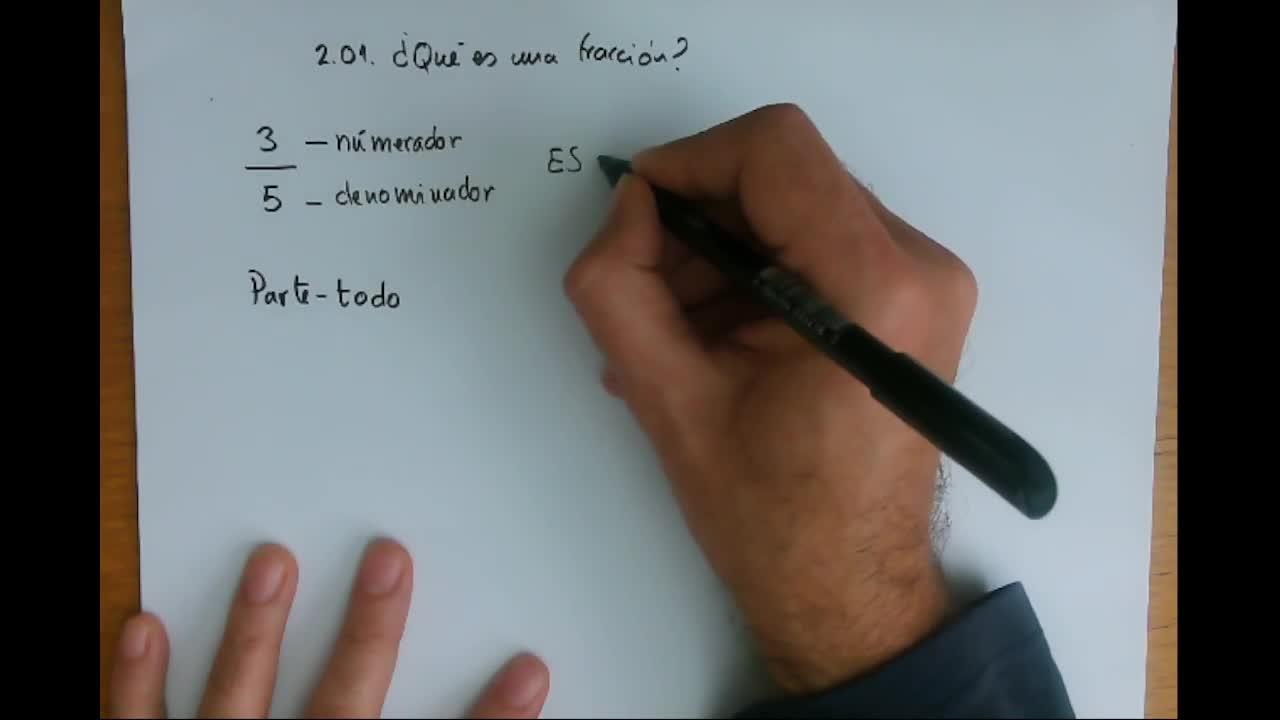 2.01. ¿Qué es una fracción?
3 – númerador
5 – denominador
ES
Parte-todo